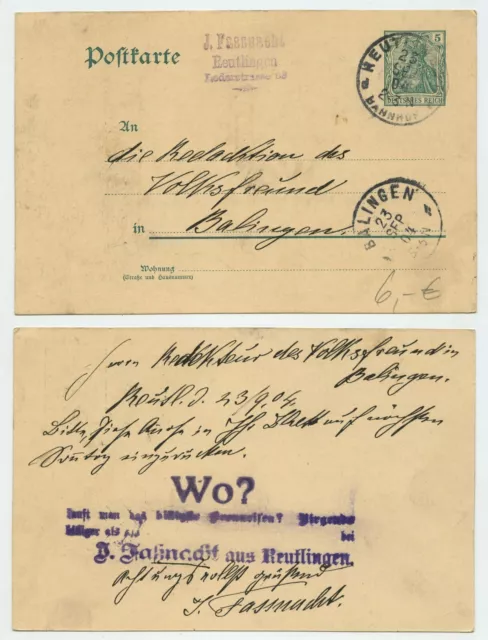 Postkarte
J. Fassnacht
Reutlingen
5
REUTL
BAHNHOF
DEUTSCHES REICH
An
die Redacktion des
Volksfreund
in Balingen.
BALINGEN
23
SEP
04
Wohnung
(Straße und Hausnummer)
6,- €
Herrn Redakteur des Volksfreund in
Balingen.
Reutl. d. 23/9. 04
Bitte, diese in Ihr Blatt auf nächsten
Sontag einzurücken.
Wo?
kauft man das billigste Nirgends
billiger als bei
J. Faßnacht aus Reutlingen.
Achtungsvollst grüßend
J. Fassnacht.